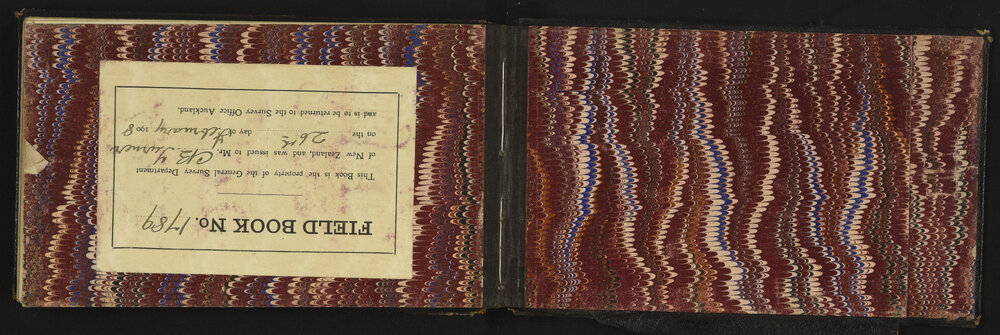 FIELD BOOK No. 1789
This Book is the property of the General Survey Department
of New Zealand, and was issued to Mr. C B Turner
on the 26th day of February 1908
and is to be returned to the Survey Office Auckland.